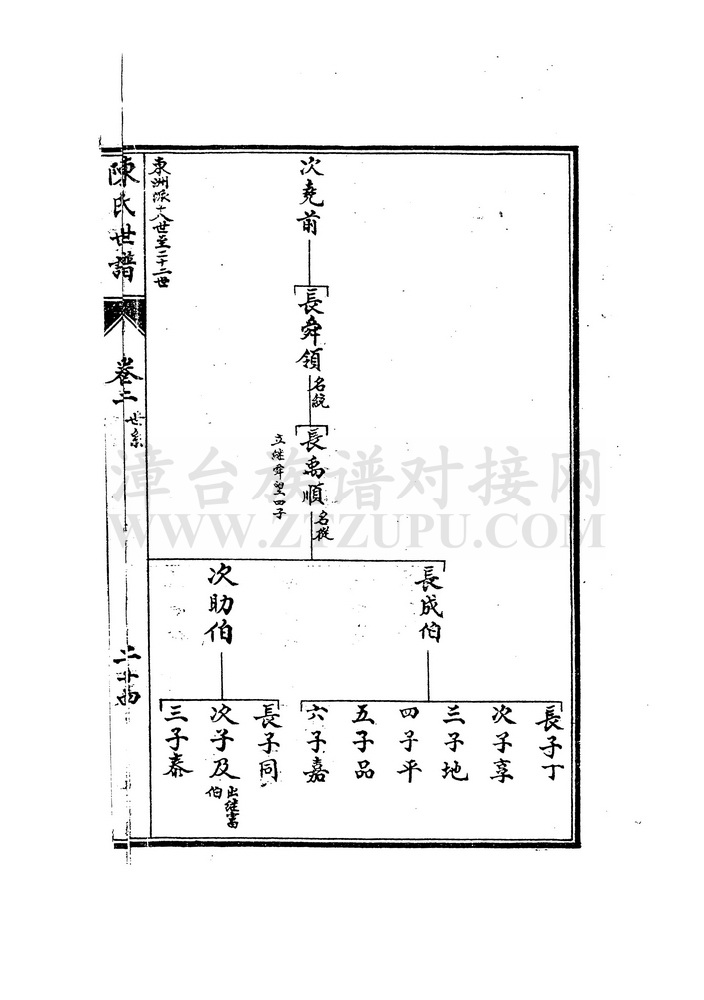 次堯前
長舜領
名統
長禹順
名從
立繼舜望四子
長成伯
次助伯
長子丁
次子享
三子地
四子平
五子品
六子嘉
長子同
次子及
出繼富伯
三子泰
東洲派十八世至二十二世
陳氏世譜
卷二
世系
二十四
漳台族谱对接网
WWW.ZTZUPU.COM